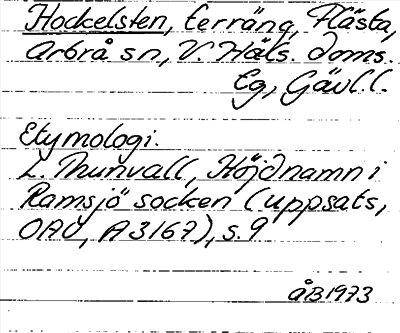 Hockelsten, terräng, Flästa,
Arbrå sn, V. Häls. doms.
Eg, Gävl.l.
Etymologi.
L. Thunvall, Höjdnamn i
Ramsjö socken (uppsats,
OAU, A3167), s. 9
ÅB1973